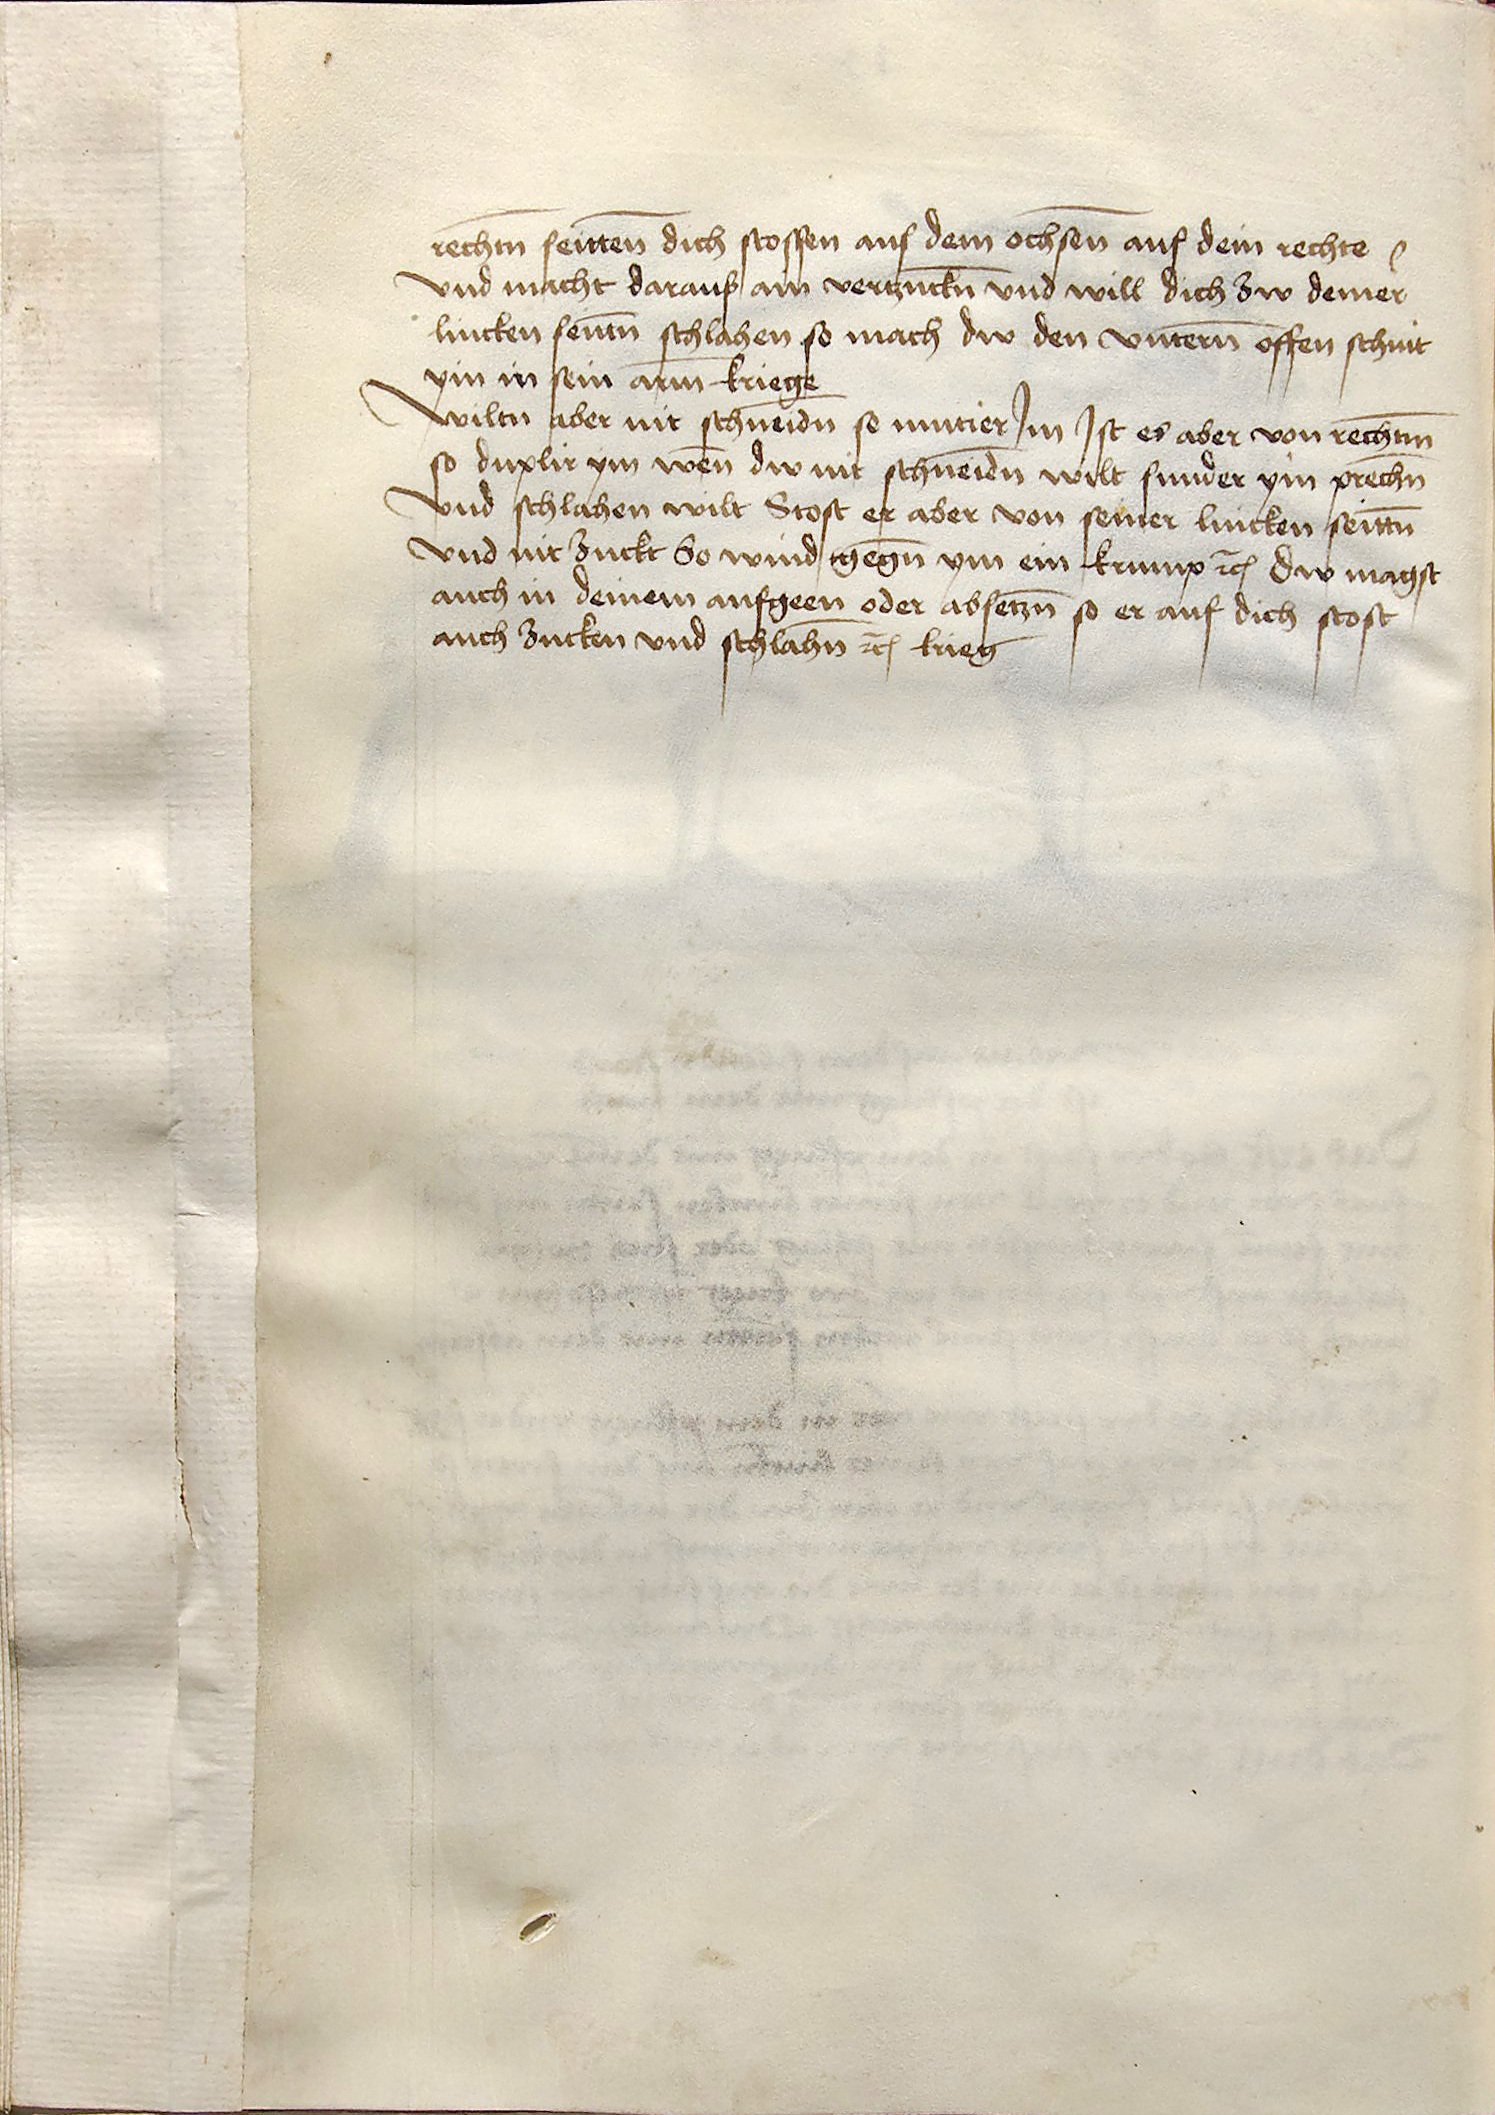 rechtn̄ seittēn dich stossen auf dem ochsēn auf dein rechte
vnd macht darauß ain vertzuckn̄ vnd will dich zw deiner
lincken seittn̄ schlahen so mach dw den vnterñ offen schnit
ym in sein arm̄ kriege
Wiltu aber nit schneidn̄ so mutier Im Ist es aber von rechtm̄
so duplir ym wēn dw nit schneidn̄ wilt sunder ym prechn̄
vnd schlahen wilt Stost er aber von seiner lincken seittn̄
vnd nit zuckt So wind gegn̄ ym ein krump ⁊c̄ Dw magst
auch in deinem aufgeen oder absetzn̄ so er auf dich stost
auch zucken vnd schlahn̄ ⁊c̄ krieg